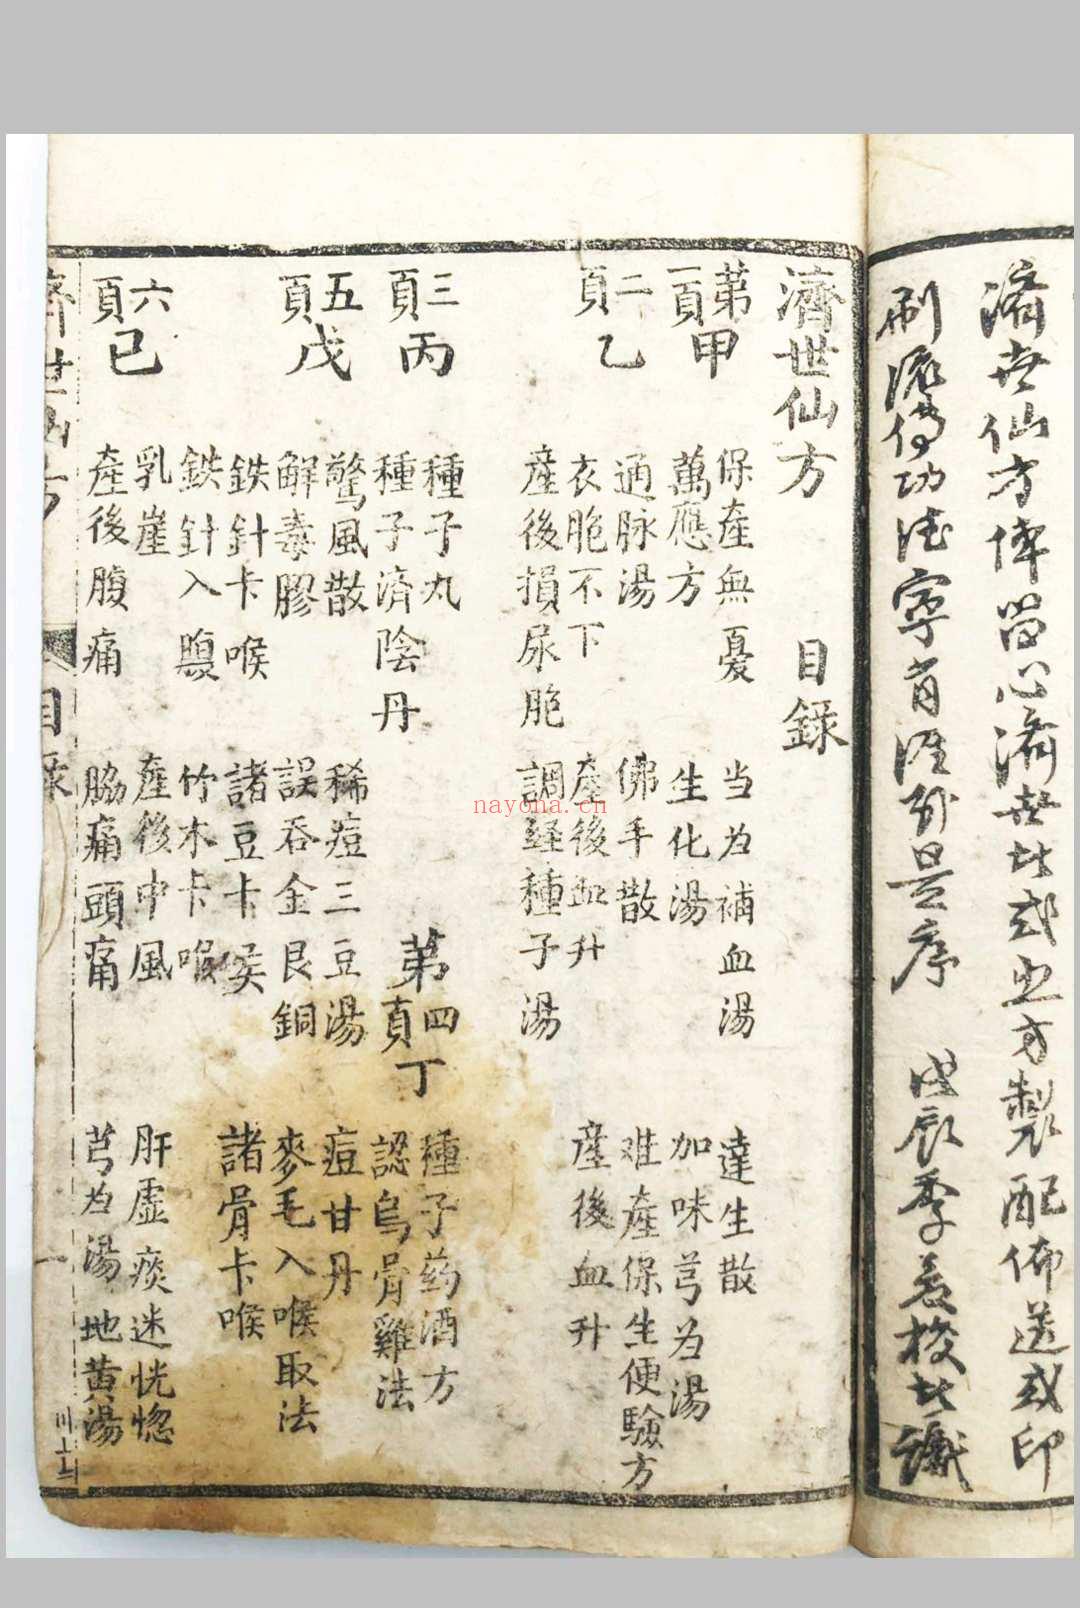 濟世仙方俾留心濟世此或照方製配佈送或印
刷流傳功德寧有涯歟是序　戊辰季春校此識
濟世仙方　目錄
第一頁甲　保產無憂　当为補血湯　達生散
萬應方　生化湯　加味芎为湯
通脉湯　佛手散　难產保生便驗方
二頁乙　衣胞不下　產後血升　產後血升
產後損尿胞　調經種子湯
三頁丙　種子丸　第四頁丁　種子药酒方
種子濟陰丹　認烏骨雞法
五頁戊　驚風散　稀痘三豆湯　痘甘丹
解毒膠　誤吞金艮銅　麥毛入喉取法
鉄針卡喉　諸豆卡喉　諸骨卡喉
鉄針入腹　竹木卡喉
六頁己　乳崖　產後中風　肝虛痰迷恍惚
產後腹痛　脇痛頭痛　芎为湯　地黄湯
濟世仙方　目錄　一
nayona.cn